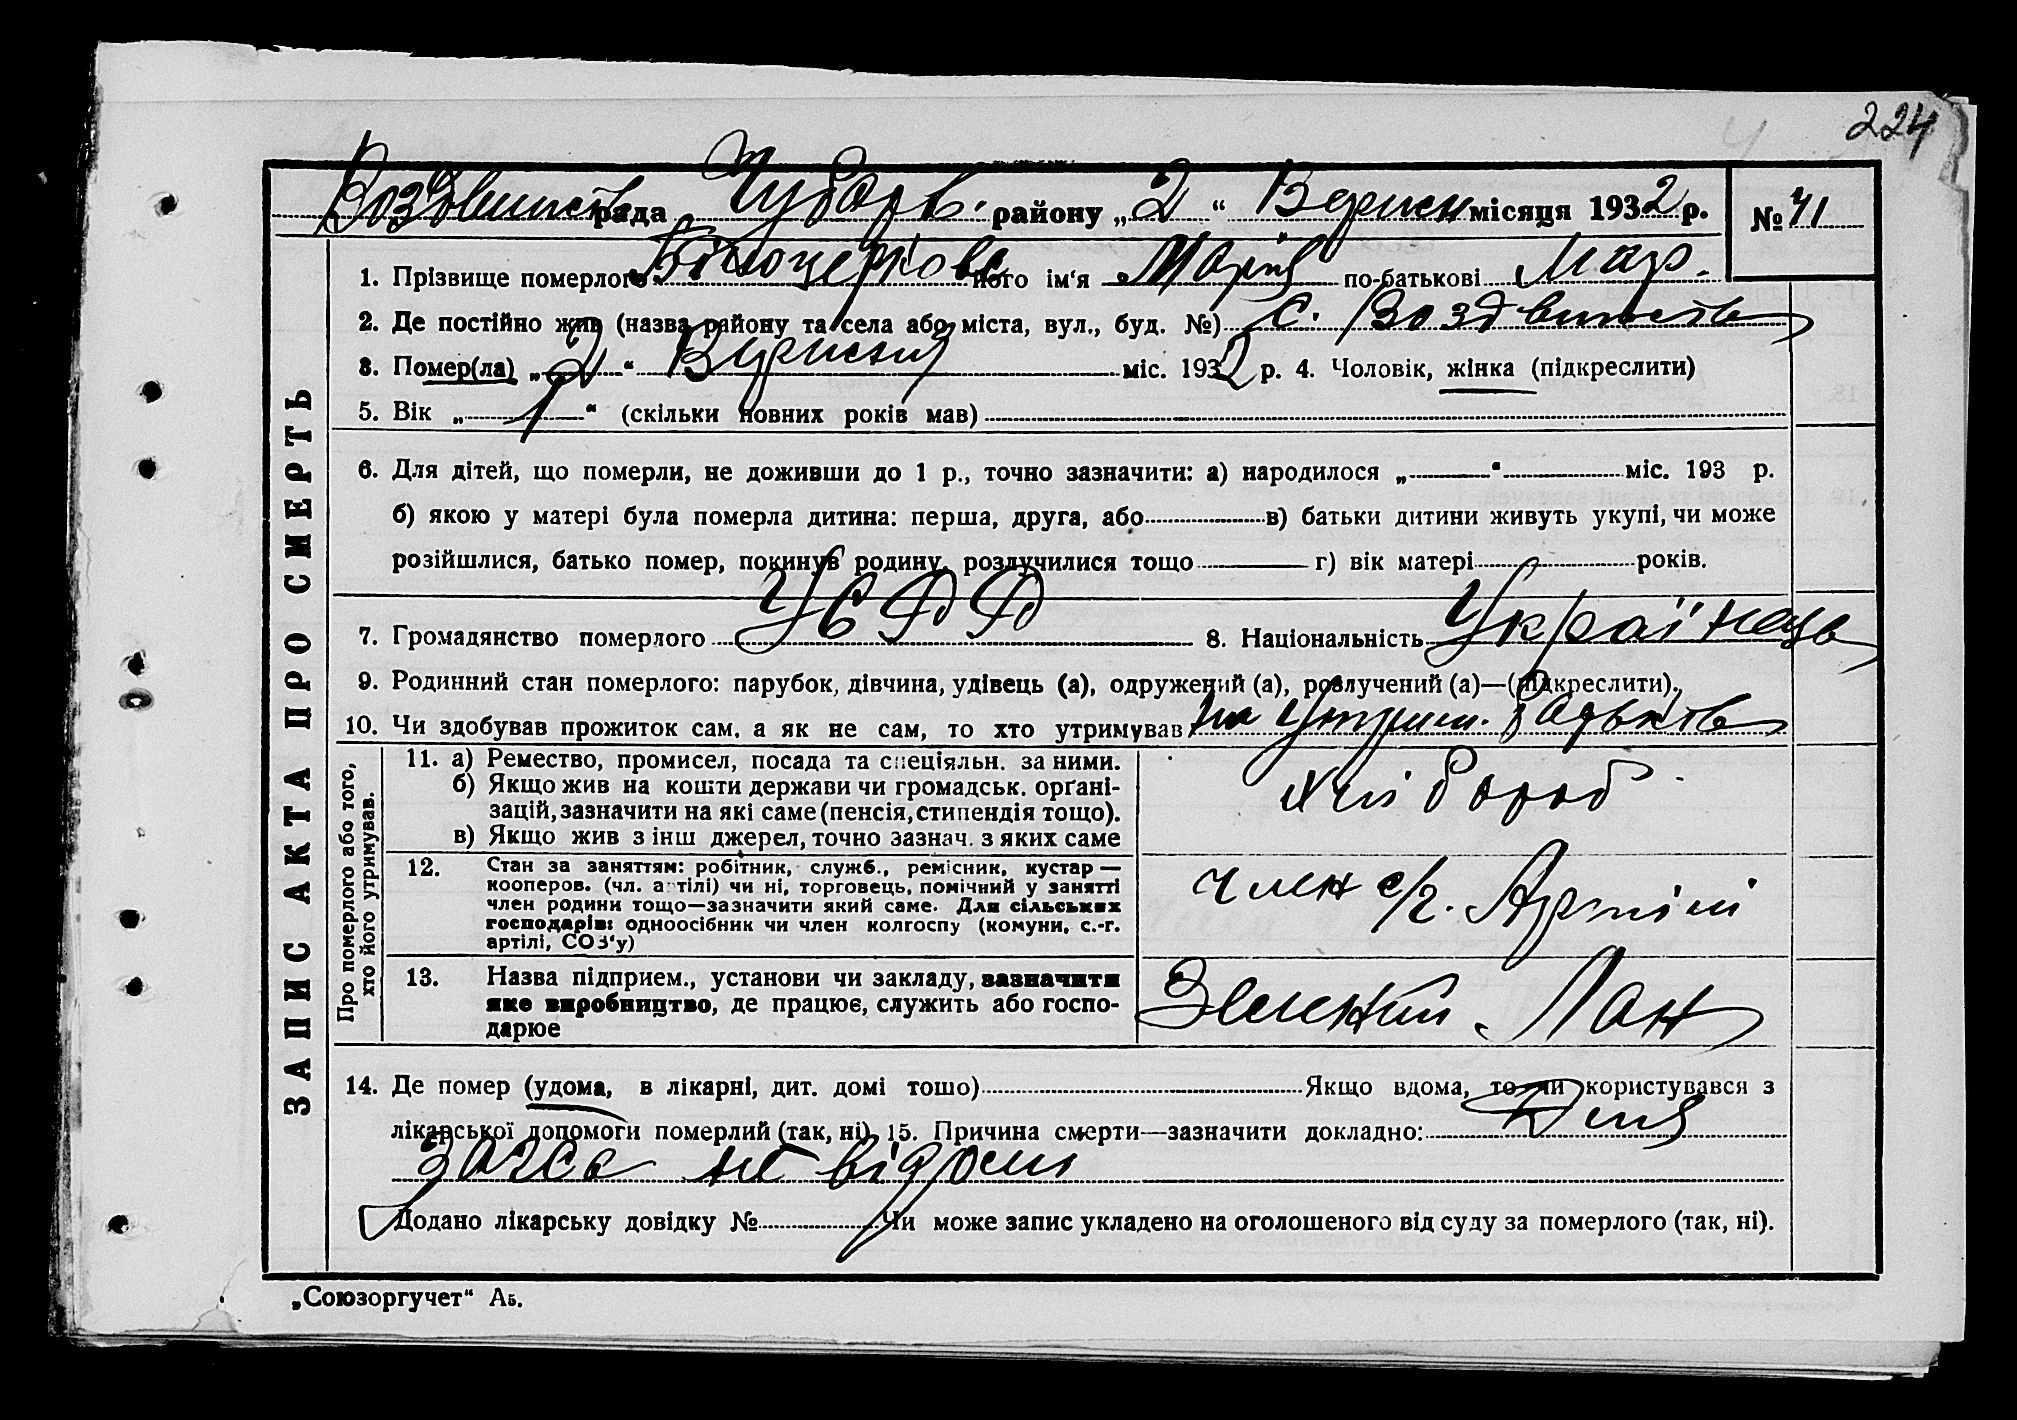 224
Воздвиженсь рада Чубарів. району „2“ Вересн місяця 1932 р. № 71
1. Прізвище померлого Білоцерківе його ім‘я Марія по-батькові Мар.
2. Де постійно жив (назва району та села або міста, вул., буд. №) с. Воздвиженсь
3. Помер(ла) „2“ Вересня міс. 1932 р. 4. Чоловік, жінка (підкреслити)
5. Вік „1“ (скільки повних років мав)
6. Для дітей, що померли, не доживши до 1 р., точно зазначити: а) народилося „ “ міс. 193 р.
б) якою у матері була померла дитина: перша, друга, або в) батьки дитини живуть укупі, чи може
розійшлися, батько помер, покинув родину, розлучилися тощо г) вік матері років.
7. Громадянство померлого УСРР 8. Національність Українець
9. Родинний стан померлого: парубок, дівчина, удівець (а), одружений (а), розлучений (а)—(підкреслити).
10. Чи здобував прожиток сам, а як не сам, то хто утримував на утрим. батьків
ЗАПИС АКТА ПРО СМЕРТЬ
Про померлого або того,
хто його утримував.
11. а) Ремество, промисел, посада та спеціяльн. за ними.
б) Якщо жив на кошти держави чи громадськ. орґані-
зацій, зазначити на які саме (пенсія, стипендія тощо).
в) Якщо жив з інш джерел, точно зазнач. з яких саме
хлібороб
12. Стан за заняттям: робітник, служб., ремісник, кустар—
кооперов. (чл. артілі) чи ні, торговець, помічний у занятті
член родини тощо—зазначити який саме. Для сільських
господарів: одноосібник чи член колгоспу (комуни, с.-г.
артілі, СОЗ‘у)
член с/г. Артілі
13. Назва підприєм., установи чи закладу, зазначити
яке виробництво, де працює, служить або госпо-
дарює
Лан
14. Де помер (удома, в лікарні, дит. домі тощо) Якщо вдома, то чи користувався з
лікарської допомоги померлий (так, ні) 15. Причина смерти—зазначити докладно:
не відомі
Додано лікарську довідку № Чи може запис укладено на оголошеного від суду за померлого (так, ні).
„Союзоргучет“ А5.